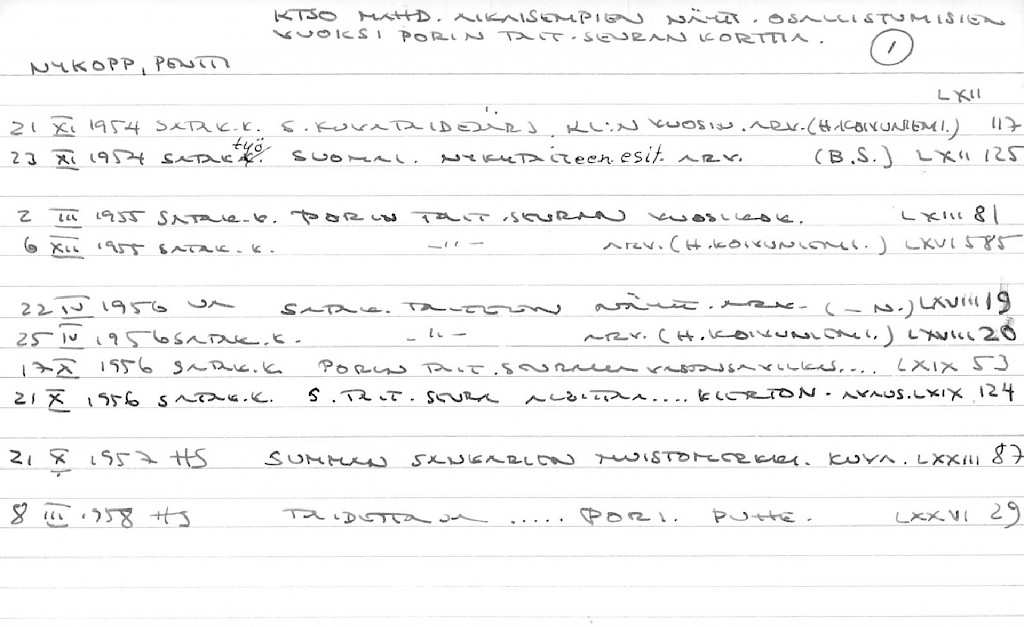 KTSO MAHD. AIKAISEMPIEN NÄYTT. OSALLISTUMISIEN
VUOKSI PORIN TAIT. SEURAN KORTTIA.
1
NYKOPP, PENTTI
LXII
21 XI 1954 SATAK.K. S. KUVATAIDEJÄRJ. KL:N VUOSIN. ARV. (H. KOIVUNIEMI.) 117
23 XI 1954 SATAK. työ SUOMAL. NYKYTAITeen esit. ARV. (B.S.) LXII 125
2 III 1955 SATAK.K. PORIN TAIT. SEURAN VUOSIKOK. LXIII 81
6 XII 1955 SATAK.K. -"- ARV. (H. KOIVUNIEMI.) LXVI 585
22 IV 1956 UA SATAK. TAITEEN NÄYTT. ARV. (– N.) LXVIII 19
25 IV 1956 SATAK.K. -"- ARV. (H. KOIVUNIEMI.) LXVIII 20
17 X 1956 SATAK.K. PORIN TAIT. SEURALLA .... LXIX 53
21 X 1956 SATAK.K. S. TAIT. SEURA ALOITTAA .... KIERTON. AVAUS. LXIX 124
21 X 1957 HS SUMMAN SANKARIEN MUISTOMERKKI. KUVA. LXXIII 87
8 III 1958 HS TAIDETTA JA ..... PORI. PUHE. LXXVI 29